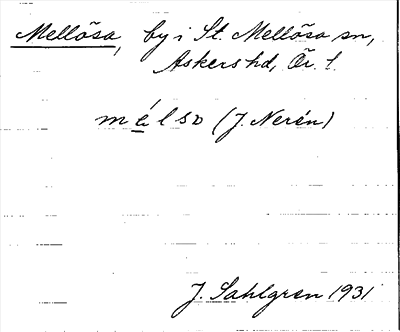 Mellösa, by i St. Mellösa sn,
Askers hd, Ör. l.
(J. Nerén)
J. Sahlgren 1931